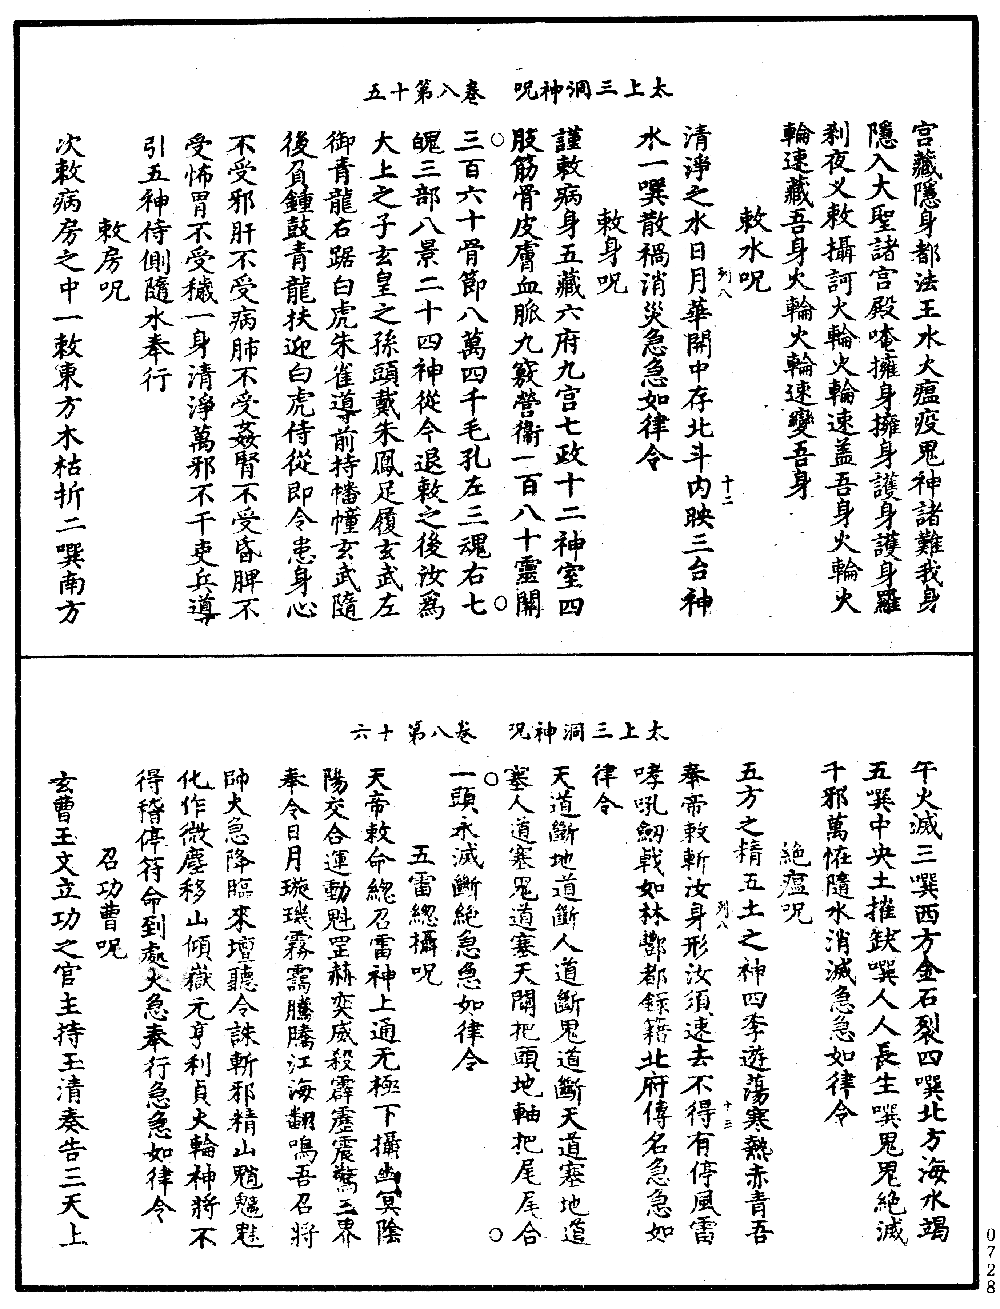 太上三洞神呪　卷八第十五
宫藏隱身都法王水火瘟疫鬼神諸難我身
隱入大聖諸宫殿唵擁身擁身護身護身羅
刹夜叉敕攝訶火輪火輪速蓋吾身火輪火
輪速藏吾身火輪火輪速變吾身
敕水呪
列八　十二
清淨之水日月華開中存北斗内映三台神
水一噀散禍消災急急如律令
敕身呪
謹敕病身五藏六府九宫七政十二神室四
肢筋骨皮膚血脈九竅營衛一百八十靈關
三百六十骨節八萬四千毛孔左三魂右七
魄三部八景二十四神從今退敕之後汝爲
大上之子玄皇之孫頭戴朱鳳足履玄武左
御青龍右踞白虎朱雀導前持幡幢玄武隨
後負鍾鼓青龍扶迎白虎侍從即令患身心
不受邪肝不受病肺不受姦腎不受昏脾不
受怖胃不受穢一身清淨萬邪不干吏兵導
引五神侍側隨水奉行
敕房呪
次敕病房之中一敕東方木枯折二噀南方
太上三洞神呪　卷八第十六
午火滅三噀西方金石裂四噀北方海水竭
五噀中央土摧缺噀人人長生噀鬼鬼絶滅
千邪萬怪隨水消滅急急如律令
絶瘟呪
五方之精五土之神四季遊蕩寒熱赤青吾
列八　十三
奉帝敕斬汝身形汝須速去不得有停風雷
哮吼劒戟如林酆都錄籍北府傳名急急如
律令
天道斷地道斷人道斷鬼道斷天道塞地道
塞人道塞鬼道塞天關把頭地軸把尾尾合
一頭永滅斷絶急急如律令
五雷總攝呪
天帝敕命總召雷神上通无極下攝幽冥陰
陽交合運動魁罡赫奕威殺霹靂震驚三界
奉令日月璇璣霧靄騰騰江海翻鳴吾召將
帥火急降臨來壇聽令誅斬邪精山魈魑魅
化作微塵移山傾嶽元亨利貞火輪神將不
得稽停符命到處火急奉行急急如律令
召功曹呪
玄曹玉文立功之官主持玉清奏告三天上
0728